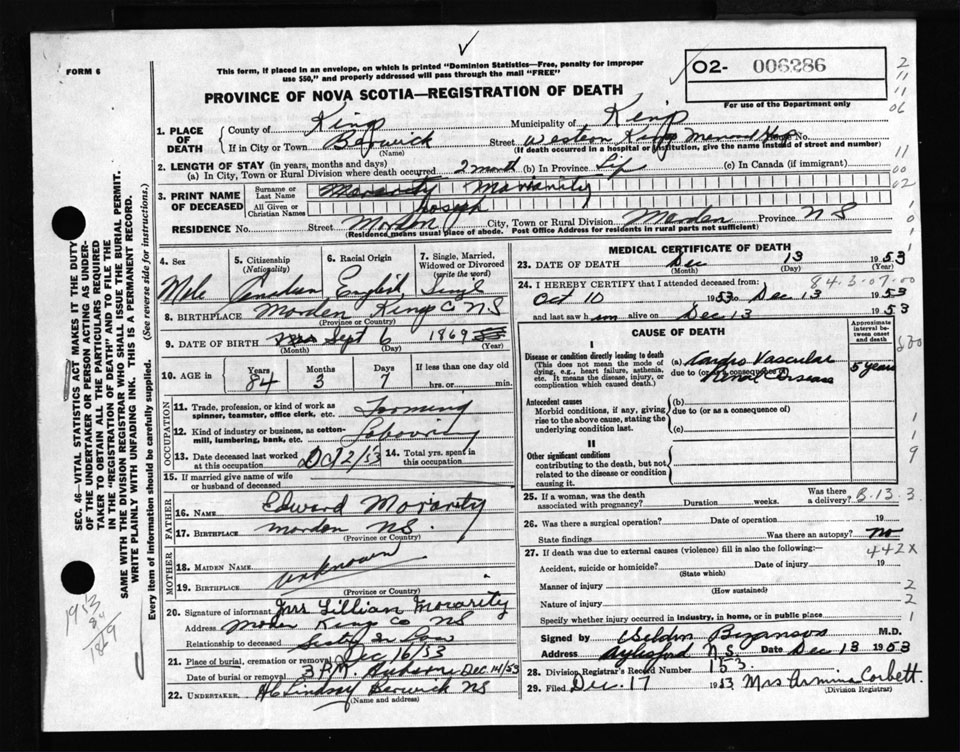 FORM 6
This form, if placed in an envelope, on which is printed "Dominion Statistics—Free, penalty for improper
use $50," and properly addressed will pass through the mail "FREE"
02- 006286
For use of the Department only
PROVINCE OF NOVA SCOTIA—REGISTRATION OF DEATH
1. PLACE OF DEATH
County of Kings Municipality of Kings
If in City or Town Berwick Street Western Kings Memorial Hosp No.
(Name) (If death occurred in a hospital or institution, give the name instead of street and number)
2. LENGTH OF STAY (in years, months and days)
(a) In City, Town or Rural Division where death occurred 2 month (b) In Province Life (c) In Canada (if immigrant)
3. PRINT NAME OF DECEASED
Surname or Last Name Morarity Morarity
All Given or Christian Names Joseph
RESIDENCE No. Street Morden City, Town or Rural Division Morden Province N S
(Residence means usual place of abode. Post Office Address for residents in rural parts not sufficient)
4. Sex Male
5. Citizenship (Nationality) Canadian
6. Racial Origin English
7. Single, Married, Widowed or Divorced (write the word) Single
8. BIRTHPLACE Morden Kings Co N S
(Province or Country)
9. DATE OF BIRTH Sept 6 1869
(Month) (Day) (Year)
10. AGE in Years 84 Months 3 Days 7 If less than one day old
hrs. or min.
OCCUPATION
11. Trade, profession, or kind of work as spinner, teamster, office clerk, etc. Farming
12. Kind of industry or business, as cotton-mill, lumbering, bank, etc. Labouring
13. Date deceased last worked at this occupation
14. Total yrs. spent in this occupation
15. If married give name of wife or husband of deceased
FATHER
16. NAME Edward Morarity
17. BIRTHPLACE Morden N.S.
(Province or Country)
MOTHER
18. MAIDEN NAME unknown
19. BIRTHPLACE
(Province or Country)
20. Signature of informant Mrs. Lillian Morarity
Address Morden Kings Co NS
Relationship to deceased Sister In Law
21. Place of burial, cremation or removal Dec 16/53
Date of burial or removal 3 P.M. Dec 14/53
22. UNDERTAKER Lindsay Berwick NS
(Name and address)
MEDICAL CERTIFICATE OF DEATH
23. DATE OF DEATH Dec 13 1953
(Month) (Day) (Year)
24. I HEREBY CERTIFY that I attended deceased from: 843-07-00
Oct 10 1953 to Dec 13 1953
and last saw him alive on Dec 13 1953
CAUSE OF DEATH
Approximate interval between onset and death
I
Disease or condition directly leading to death
(This does not mean the mode of dying, e.g., heart failure, asthenia, etc. It means the disease, injury, or complication which caused death.)
(a) Cardio Vascular
due to (or as a consequence of) Renal Disease
5 years
Antecedent causes
Morbid conditions, if any, giving rise to the above cause, stating the underlying condition last.
(b)
due to (or as a consequence of)
(c)
II
Other significant conditions
contributing to the death, but not related to the disease or condition causing it.
25. If a woman, was the death associated with pregnancy? Duration weeks. Was there a delivery? B-13-3
26. Was there a surgical operation? Date of operation 19
State findings Was there an autopsy? no
27. If death was due to external causes (violence) fill in also the following:— 442X
Accident, suicide or homicide? Date of injury 19
(State which)
Manner of injury
(How sustained)
Nature of injury
Specify whether injury occurred in industry, in home, or in public place
Signed by M.D.
Address Aylesford N.S. Date Dec 13 1953
28. Division Registrar's Record Number 153.
29. Filed Dec. 17 1953 Mrs Armina Corbett.
(Division Registrar)
SEC. 46—VITAL STATISTICS ACT MAKES IT THE DUTY
OF THE UNDERTAKER OR PERSON ACTING AS UNDER-
TAKER TO OBTAIN ALL THE PARTICULARS REQUIRED
IN THE "REGISTRATION OF DEATH" AND TO FILE THE
SAME WITH THE DIVISION REGISTRAR WHO SHALL ISSUE THE BURIAL PERMIT.
WRITE PLAINLY WITH UNFADING INK. THIS IS A PERMANENT RECORD.
Every item of information should be carefully supplied. (See reverse side for instructions.)
1953
84
1869